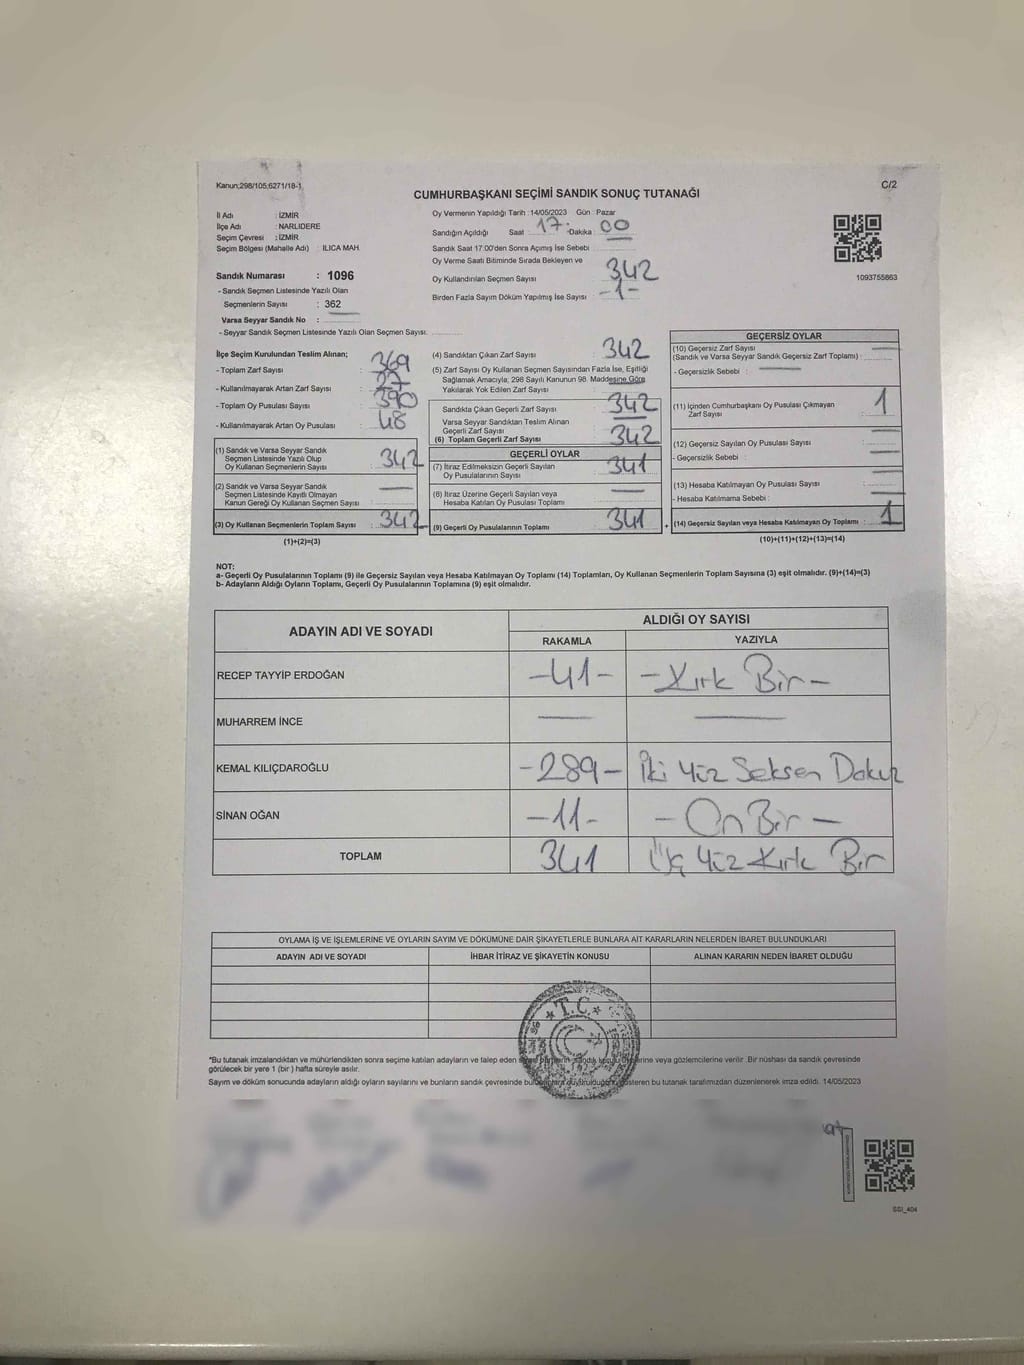 Kanun;298/105;6271/18-1
C/2
CUMHURBAŞKANI SEÇİMİ SANDIK SONUÇ TUTANAĞI
İl Adı : İZMİR
İlçe Adı : NARLIDERE
Seçim Çevresi : İZMİR
Seçim Bölgesi (Mahalle Adı) : ILICA MAH.
Sandık Numarası : 1096
- Sandık Seçmen Listesinde Yazılı Olan
Seçmenlerin Sayısı : 362
Varsa Seyyar Sandık No :
- Seyyar Sandık Seçmen Listesinde Yazılı Olan Seçmen Sayısı:
Oy Vermenin Yapıldığı Tarih : 14/05/2023 Gün : Pazar
Sandığın Açıldığı Saat 17 :Dakika : 00
Sandık Saat 17:00'den Sonra Açımış İse Sebebi :
Oy Verme Saati Bitiminde Sırada Bekleyen ve
Oy Kullandırılan Seçmen Sayısı 342
Birden Fazla Sayım Döküm Yapılmış İse Sayısı : -1-
1093755863
İlçe Seçim Kurulundan Teslim Alınan;
- Toplam Zarf Sayısı : 369
- Kullanılmayarak Artan Zarf Sayısı : 27
- Toplam Oy Pusulası Sayısı : 390
- Kullanılmayarak Artan Oy Pusulası : 48
(1) Sandık ve Varsa Seyyar Sandık
Seçmen Listesinde Yazılı Olup
Oy Kullanan Seçmenlerin Sayısı : 342
(2) Sandık ve Varsa Seyyar Sandık
Seçmen Listesinde Kayıtlı Olmayan
Kanun Gereği Oy Kullanan Seçmen Sayısı
(3) Oy Kullanan Seçmenlerin Toplam Sayısı : 342
(1)+(2)=(3)
(4) Sandıktan Çıkan Zarf Sayısı : 342
(5) Zarf Sayısı Oy Kullanan Seçmen Sayısından Fazla İse, Eşitliği
Sağlamak Amacıyla; 298 Sayılı Kanunun 98. Maddesine Göre
Yakılarak Yok Edilen Zarf Sayısı
Sandıkta Çıkan Geçerli Zarf Sayısı : 342
Varsa Seyyar Sandıktan Teslim Alınan
Geçerli Zarf Sayısı
(6) Toplam Geçerli Zarf Sayısı : 342
GEÇERLİ OYLAR
(7) İtiraz Edilmeksizin Geçerli Sayılan
Oy Pusulalarının Sayısı : 341
(8) İtiraz Üzerine Geçerli Sayılan veya
Hesaba Katılan Oy Pusulası Toplamı
(9) Geçerli Oy Pusulalarının Toplamı : 341
GEÇERSİZ OYLAR
(10) Geçersiz Zarf Sayısı
(Sandık ve Varsa Seyyar Sandık Geçersiz Zarf Toplamı) :
- Geçersizlik Sebebi :
(11) İçinden Cumhurbaşkanı Oy Pusulası Çıkmayan
Zarf Sayısı : 1
(12) Geçersiz Sayılan Oy Pusulası Sayısı
- Geçersizlik Sebebi :
(13) Hesaba Katılmayan Oy Pusulası Sayısı
- Hesaba Katılmama Sebebi :
+ (14) Geçersiz Sayılan veya Hesaba Katılmayan Oy Toplamı : 1
(10)+(11)+(12)+(13)=(14)
NOT:
a- Geçerli Oy Pusulalarının Toplamı (9) ile Geçersiz Sayılan veya Hesaba Katılmayan Oy Toplamı (14) Toplamları, Oy Kullanan Seçmenlerin Toplam Sayısına (3) eşit olmalıdır. (9)+(14)=(3)
b- Adayların Aldığı Oyların Toplamı, Geçerli Oy Pusulalarının Toplamına (9) eşit olmalıdır.
ADAYIN ADI VE SOYADI
ALDIĞI OY SAYISI
RAKAMLA YAZIYLA
RECEP TAYYİP ERDOĞAN -41- -Kırk Bir-
MUHARREM İNCE
KEMAL KILIÇDAROĞLU -289- İki Yüz Seksen Dokuz
SİNAN OĞAN -11- -On Bir-
TOPLAM 341 Üç Yüz Kırk Bir
OYLAMA İŞ VE İŞLEMLERİNE VE OYLARIN SAYIM VE DÖKÜMÜNE DAİR ŞİKAYETLERLE BUNLARA AİT KARARLARIN NELERDEN İBARET BULUNDUKLARI
ADAYIN ADI VE SOYADI İHBAR İTİRAZ VE ŞİKAYETİN KONUSU ALINAN KARARIN NEDEN İBARET OLDUĞU
T.C.
*Bu tutanak imzalandıktan ve mühürlendikten sonra seçime katılan adayların ve talep eden veya gözlemcilerine verilir. Bir nüshası da sandık çevresinde
görülecek bir yere 1 (bir) hafta süreyle asılır.
Sayım ve döküm sonucunda adayların aldığı oyların sayılarını ve bunların sandık çevresinde bu tutanak tarafımızdan düzenlenerek imza edildi. 14/05/2023
SSI_404